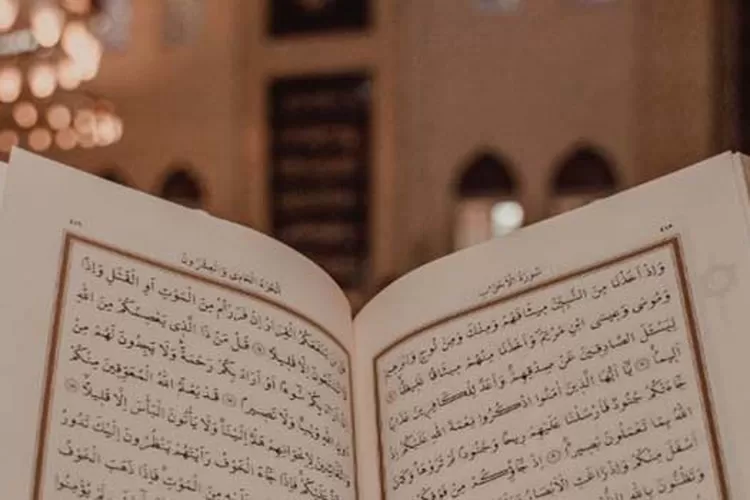 سُورَةُ الْاَحْزَابِ
وَاِذْ اَخَذْنَا مِنَ النَّبِيّنَ مِيثَاقَهُمْ وَمِنْكَ وَمِنْ نُوحٍ وَاِبْرٰهِيمَ
وَمُوسٰى وَعِيسَى ابْنِ مَرْيَمَ وَاَخَذْنَا مِنْهُمْ مِيثَاقًا غَلِيظًا
لِيَسْئَلَ الصَّادِقِينَ عَنْ صِدْقِهِمْ وَاَعَدَّ لِلْكَافِرِينَ عَذَابًا
اَلِيمًا يَا اَيُّهَا الَّذِينَ اٰمَنُوا اذْكُرُوا نِعْمَةَ اللّٰهِ عَلَيْكُمْ اِذْ
جَاءَتْكُمْ جُنُودٌ فَاَرْسَلْنَا عَلَيْهِمْ رِيحًا وَجُنُودًا لَمْ تَرَوْهَا وَكَانَ
اللّٰهُ بِمَا تَعْمَلُونَ بَصِيرًا اِذْ جَاؤُكُمْ مِنْ فَوْقِكُمْ
اَسْفَلَ مِنْكُمْ وَاِذْ زَاغَتِ الْاَبْصَارُ
وَتَظُنُّونَ
اَلْجُزْءُ الْحَادِى وَالْعِشْرُونَ
يَنْفَعَكُمُ الْفِرَارُ اِنْ فَرَرْتُمْ مِنَ الْمَوْتِ اَوِ الْقَتْلِ وَاِذًا
تُمَتَّعُونَ اِلَّا قَلِيلًا قُلْ مَنْ ذَا الَّذِى يَعْصِمُكُمْ مِنَ اللّٰهِ
اَرَادَ بِكُمْ سُوءًا اَوْ اَرَادَ بِكُمْ رَحْمَةً وَلَا يَجِدُونَ لَهُمْ مِنْ
اللّٰهِ وَلِيًّا وَلَا نَصِيرًا قَدْ يَعْلَمُ اللّٰهُ الْمُعَوِّقِينَ مِنْكُمْ
وَالْقَائِلِينَ لِاِخْوَانِهِمْ هَلُمَّ اِلَيْنَا وَلَا يَأْتُونَ الْبَأْسَ اِلَّا قَلِيلًا
عَلَيْكُمْ فَاِذَا جَاءَ الْخَوْفُ رَاَيْتَهُمْ يَنْظُرُونَ اِلَيْكَ تَدُورُ
عَلَيْهِ مِنَ الْمَوْتِ فَاِذَا ذَهَبَ الْخَوْفُ
يُؤْمِنُوا